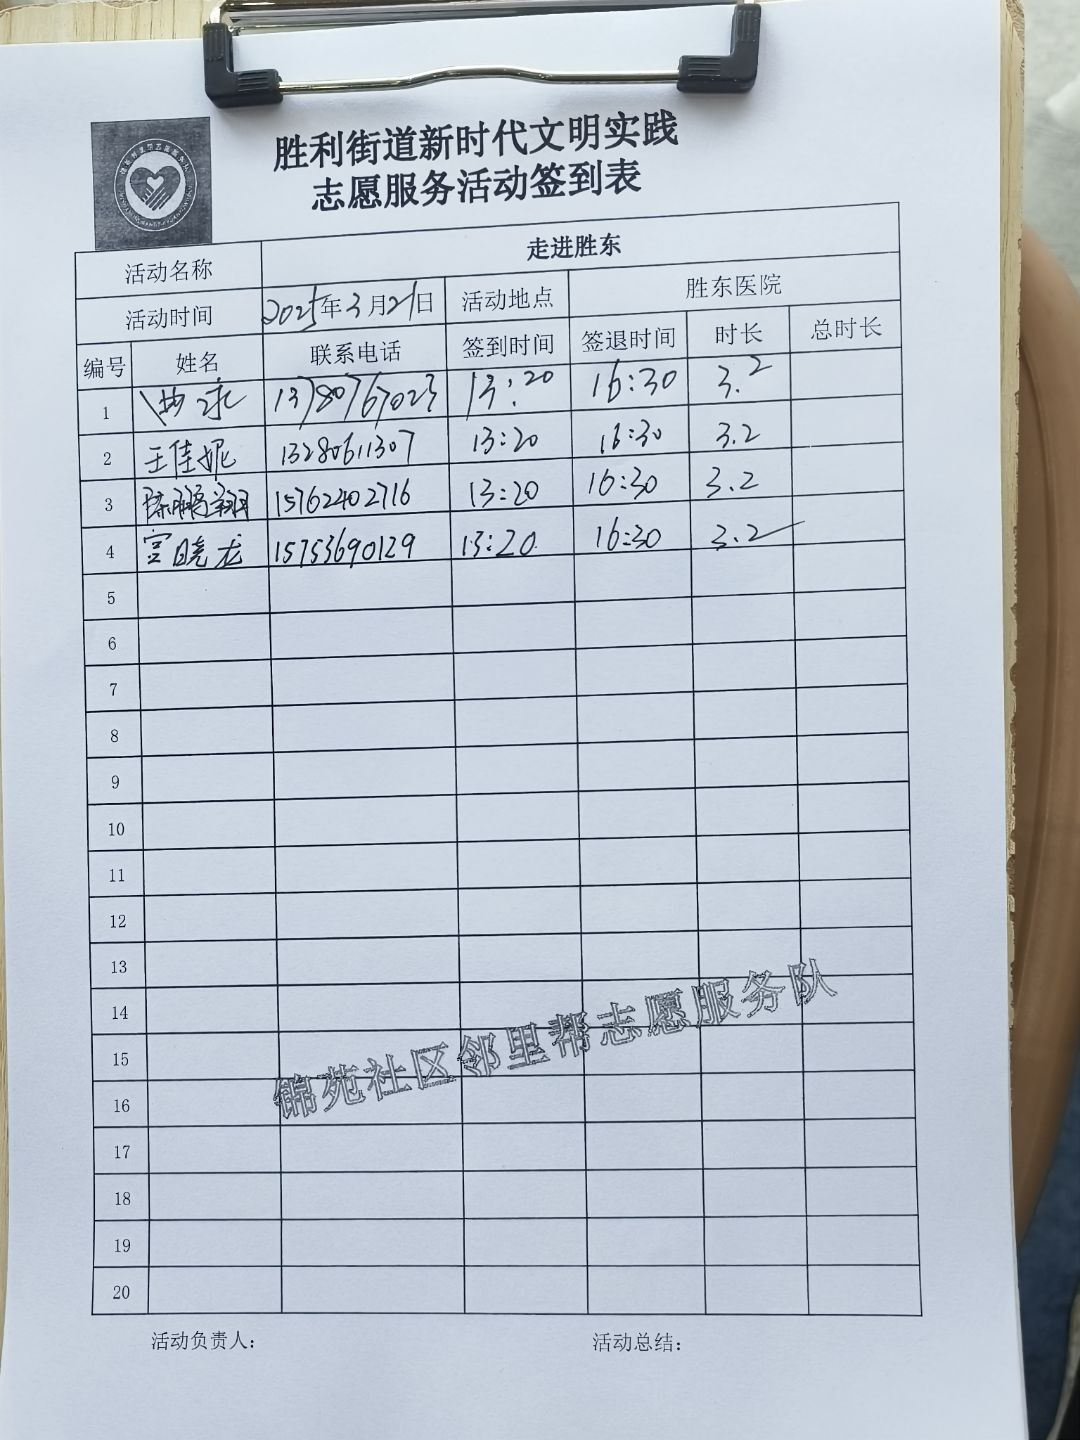 胜利街道新时代文明实践
志愿服务活动签到表
活动名称 走进胜东
活动时间 2025年3月21日 活动地点 胜东医院
编号 姓名 联系电话 签到时间 签退时间 时长 总时长
1 13780767023 13:20 16:30 3.2
2 王佳妮 13280611307 13:20 16:30 3.2
3 陈鹏翔 15762402716 13:20 16:30 3.2
4 宫晓龙 15753690129 13:20 16:30 3.2
5
6
7
8
9
10
11
12
13
14
15
16
17
18
19
20
锦苑社区邻里帮志愿服务队
活动负责人: 活动总结: